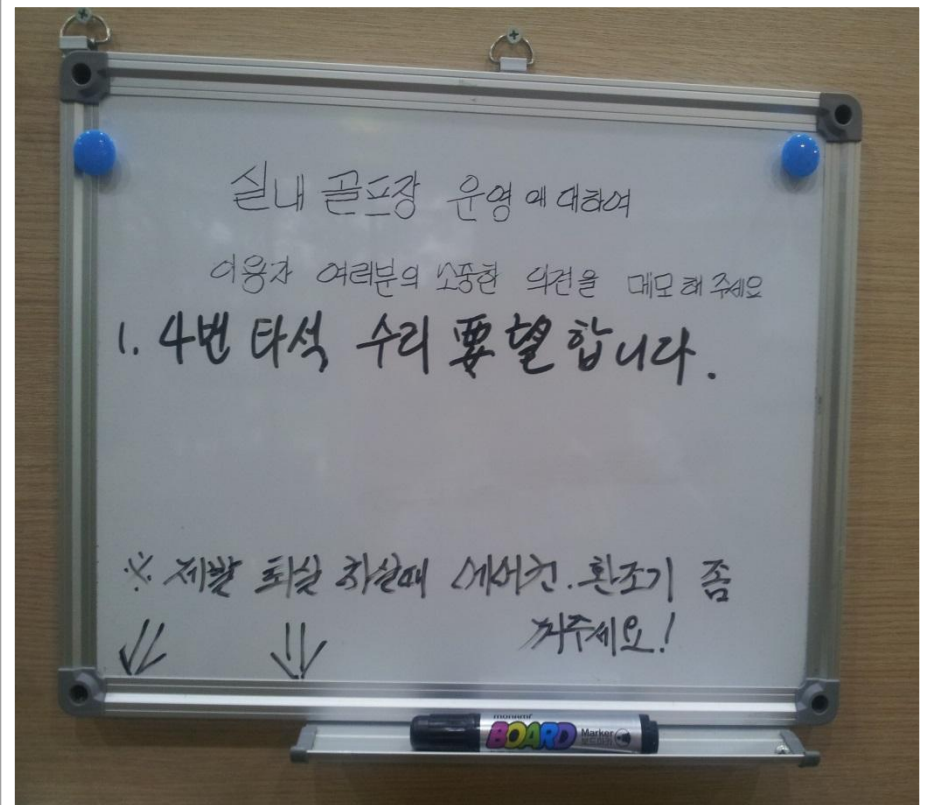 실내 골프장 운영에 대하여
이용자 여러분의 소중한 의견을 메모해 주세요
1. 4번 타석 수리 要望합니다.
※ 제발 퇴실 하실때 에어컨. 환조기 좀
꺼주세요!
monami
BOARD Marker
보드마카